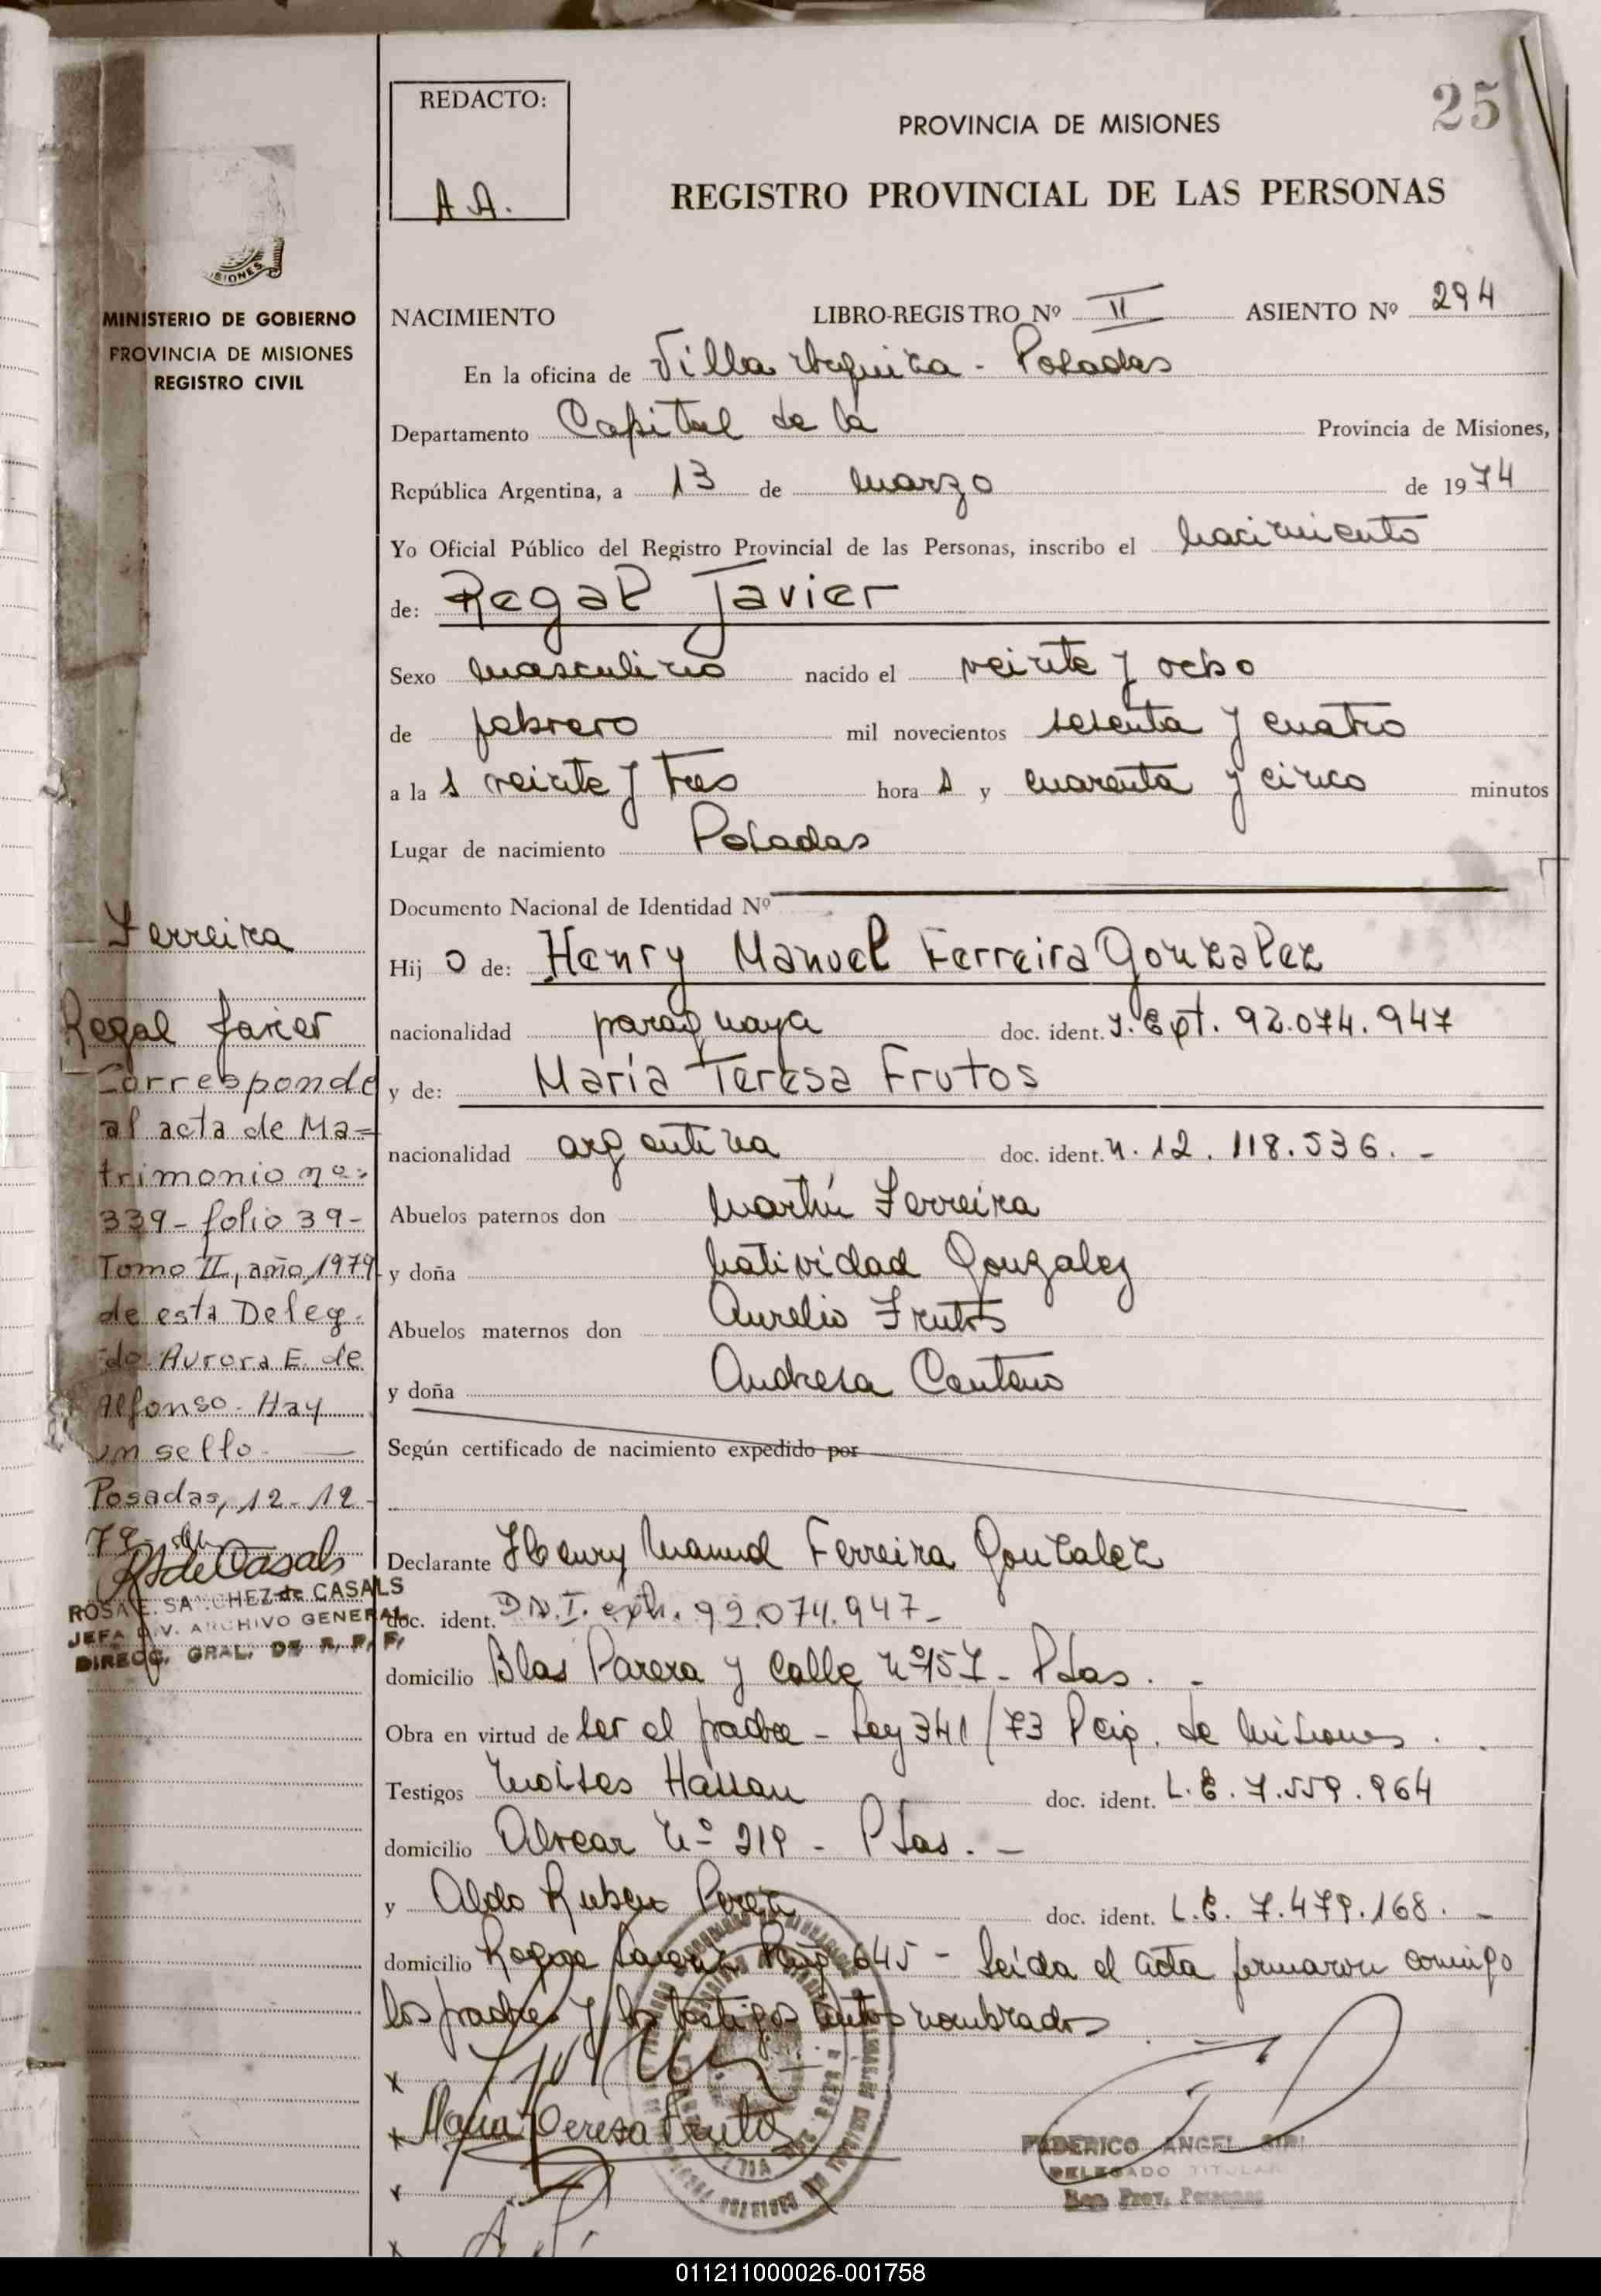 25
REDACTO:
A.A.
PROVINCIA DE MISIONES
REGISTRO PROVINCIAL DE LAS PERSONAS
MINISTERIO DE GOBIERNO
PROVINCIA DE MISIONES
REGISTRO CIVIL
NACIMIENTO LIBRO-REGISTRO Nº II ASIENTO Nº 294
En la oficina de Villa Urquiza - Posadas
Departamento Capital de la Provincia de Misiones,
República Argentina, a 13 de marzo de 1974
Yo Oficial Público del Registro Provincial de las Personas, inscribo el nacimiento
de: Regal Javier
Sexo masculino nacido el veinte y ocho
de febrero mil novecientos setenta y cuatro
a la s veinte y tres hora s y cuarenta y cinco minutos
Lugar de nacimiento Posadas
Documento Nacional de Identidad Nº
Hij o de: Henry Manuel Ferreira Gonzalez
nacionalidad paraguaya doc. ident. 92.074.947
y de: María Teresa Frutos
nacionalidad argentina doc. ident. n. 12.118.536. -
Abuelos paternos don Martín Ferreira
y doña Natividad Gonzalez
Abuelos maternos don Aurelio Frutos
y doña Andresa Centeno
Según certificado de nacimiento expedido por
Declarante Henry Manuel Ferreira Gonzalez
doc. ident. D.N.I. ext. 92.074.947-
domicilio Blas Parera y Calle nº 157 - Pdas. -
Obra en virtud de ser el padre - Ley 341/73 Pcia. de Misiones.
Testigos Moises Hassan doc. ident. L.E. 7.559.964
domicilio Alvear nº 219 - Pdas. -
y Aldo Ruben Perez doc. ident. L.E. 7.479.168. -
domicilio Roque Saenz Peña 645 - Leida el acta firmaron conmigo
los padres y los testigos antes nombrados
x
x Maria Teresa Frutos
x
x
FEDERICO ANGEL
DELEGADO TITULAR
Reg. Prov. Personas
Ferreira
Regal Javier
Corresponde
al acta de Ma=
trimonio nº:
339- folio 39-
Tomo II, año 1979
de esta Deleg.
do. Aurora E. de
Alfonso. Hay
un sello.
Posadas, 12-12-
79
RSdeCasals
ROSA E. SANCHEZ de CASALS
JEFA DIV. ARCHIVO GENERAL
DIRECC. GRAL. DE R. P. P.
011211000026-001758